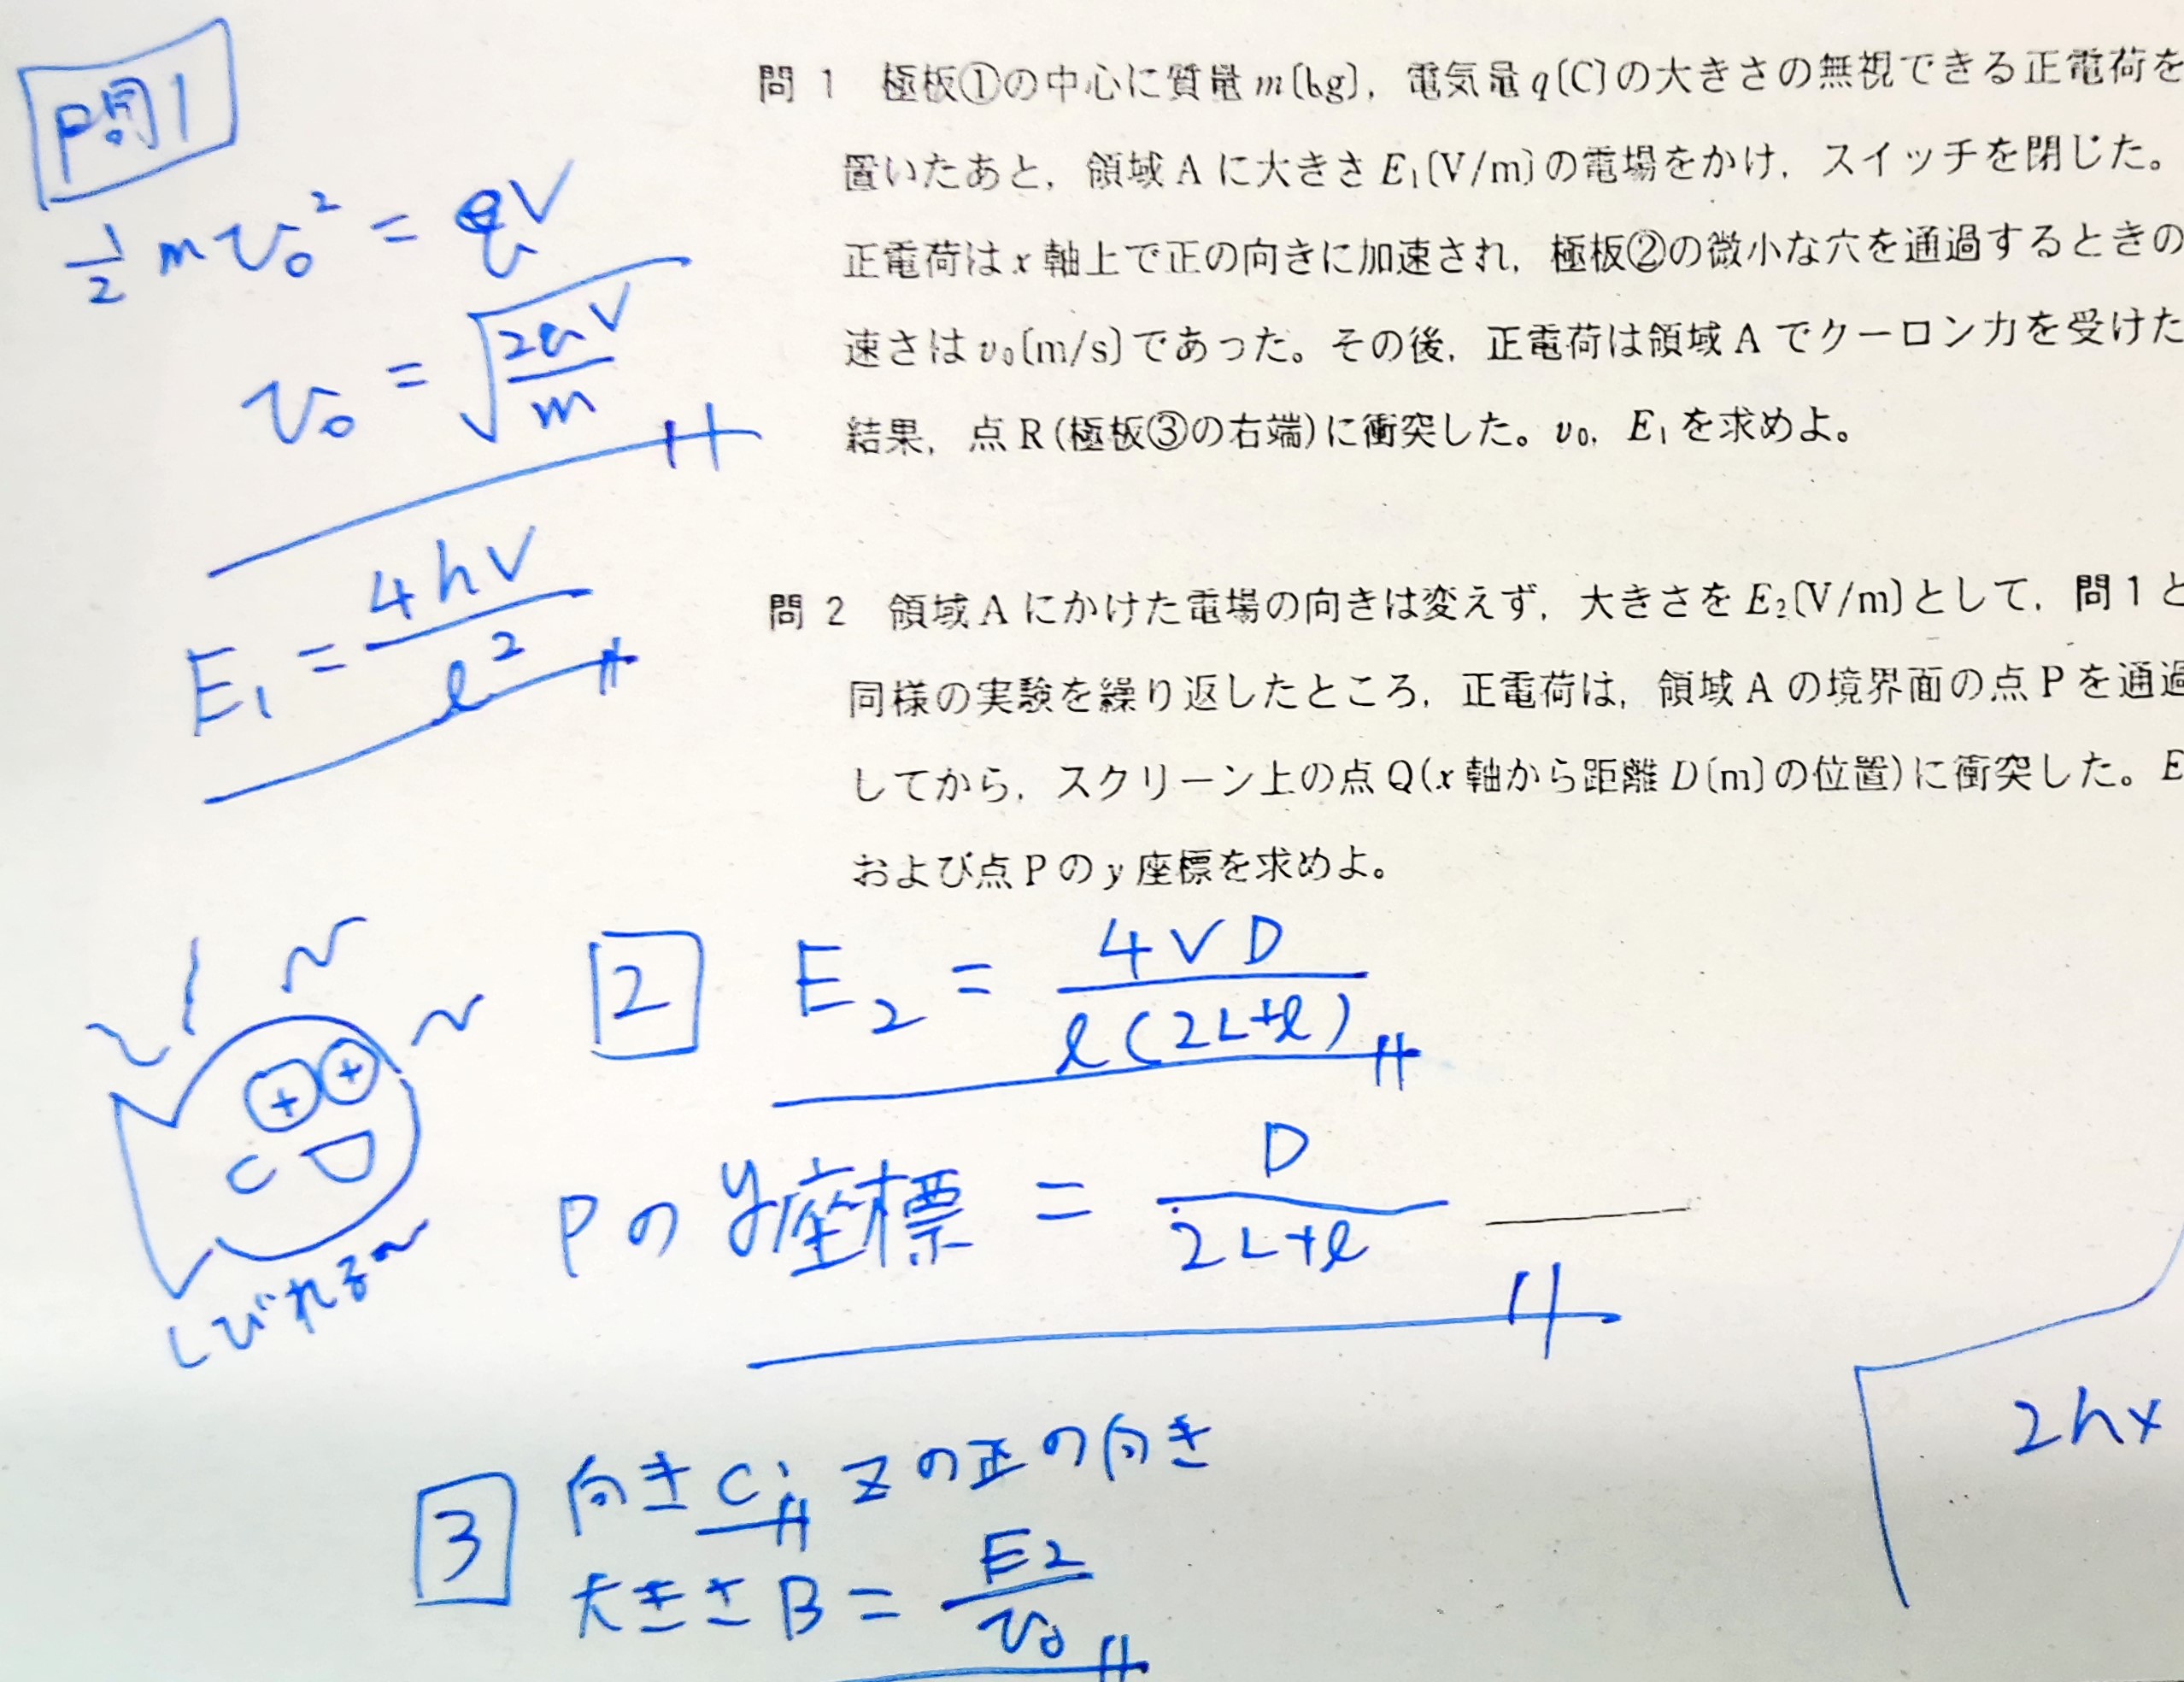 P問1
1/2 mv₀² = qV
v₀ = √(2qV/m)
E₁ = 4hV/ℓ²
問1 極板①の中心に質量m〔kg〕，電気量q〔C〕の大きさの無視できる正電荷を
置いたあと，領域Aに大きさE₁〔V/m〕の電場をかけ，スイッチを閉じた。
正電荷はx軸上で正の向きに加速され，極板②の微小な穴を通過するときの
速さはv₀〔m/s〕であった。その後，正電荷は領域Aでクーロン力を受けた
結果，点R(極板③の右端)に衝突した。v₀，E₁を求めよ。
問2 領域Aにかけた電場の向きは変えず，大きさをE₂〔V/m〕として，問1と
同様の実験を繰り返したところ，正電荷は，領域Aの境界面の点Pを通過
してから，スクリーン上の点Q(x軸から距離D〔m〕の位置)に衝突した。E
および点Pのy座標を求めよ。
2 E₂ = 4VD/ℓ(2L+ℓ)
Pのy座標 = D/2L+ℓ
しびれる〜
3 向き C; zの正の向き
大きさB = E2/v₀
2hx